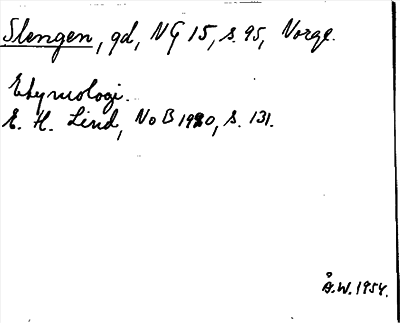 Slengen, gd, NG 15, s. 95, Norge.
Etymologi.
E. H. Lind, NoB 1920, s. 131.
Å.W. 1954.